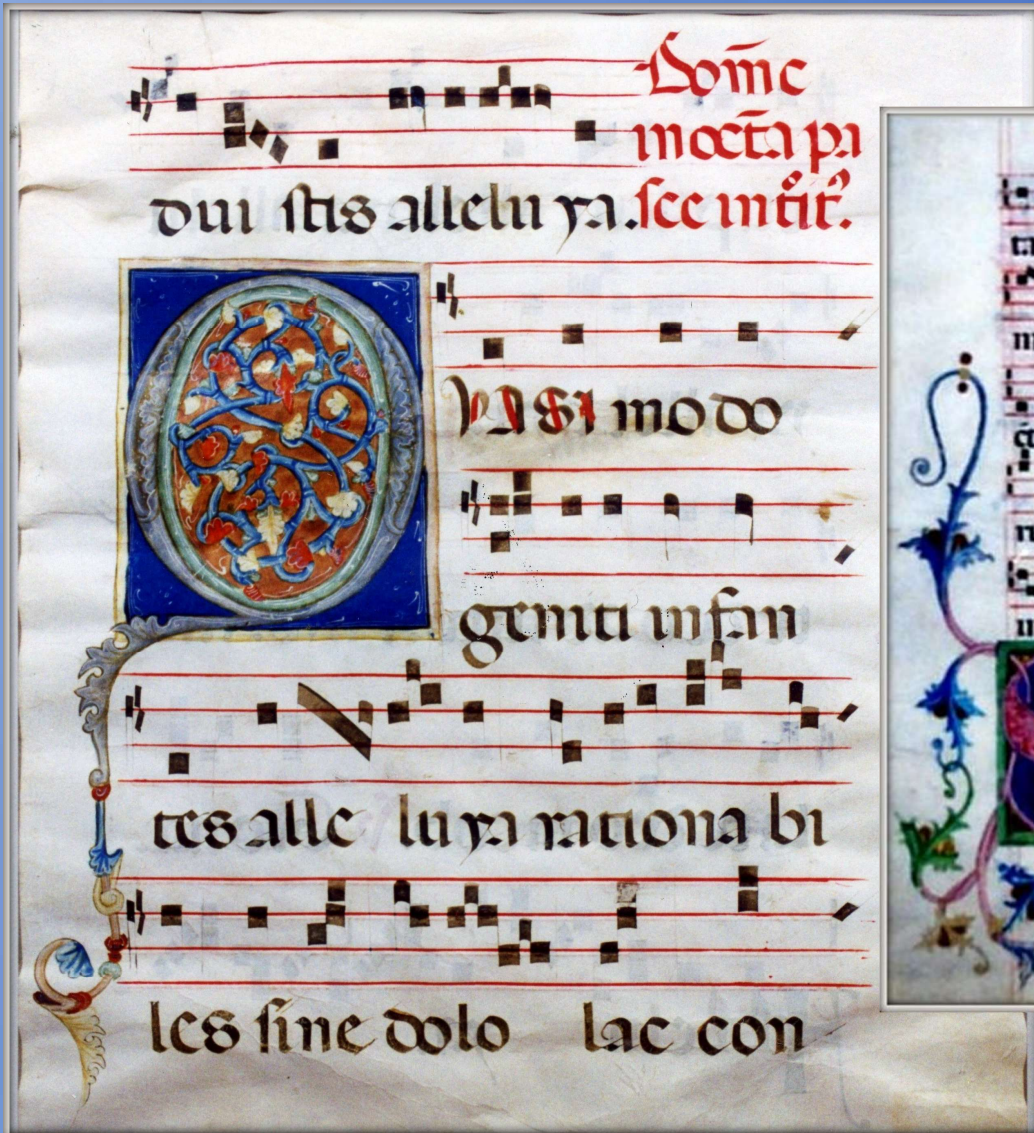 Dom̄c
in oct̄a pa
dui stis alleluya. sce intit.
QUASI modo
geniti infan
tes alle luya rationabi
les sine dolo lac con